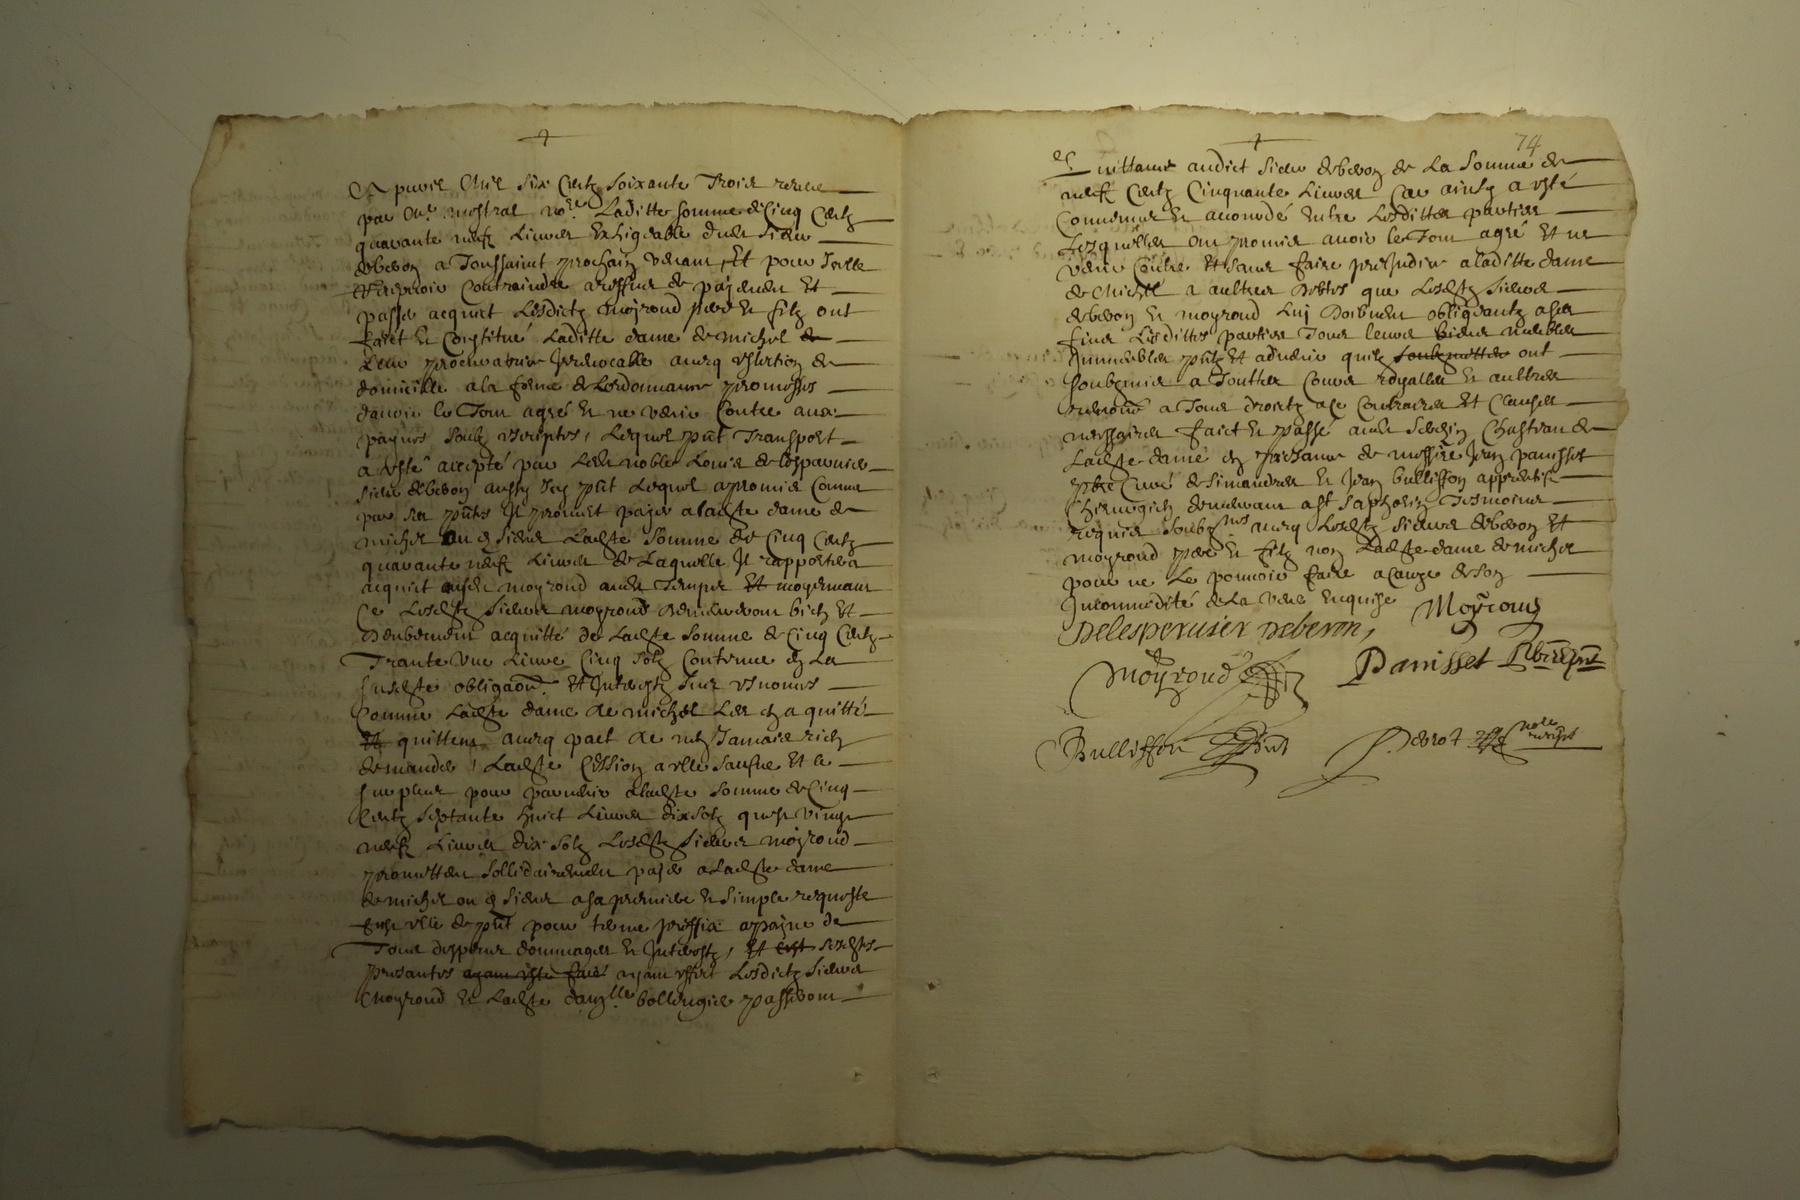 Apvril Mil Six Centz Soixante Trois receue
par Me mestral nore Laditte somme de Cinq Centz
quarante neuf Livres Exhigeable dudit Sieur
debevon a Toussaint prochain venant, Et pour Icelle
Contraindre de payement Et
passer acquict Lesdictz Moyroud pere Et filz ont
faict Et Constitué Laditte dame de michel de
Leur procuratrice Irrevocable avecq eslection de
domicille a la forme de Lordonnance promesses
davoir le Tout agré Et ne venir Contre aux
paynes soubz escriptes, Lequel pnt Transport
a esté accepté par Ledit noble Louis de lesparvier
Sieur debevon aussy Icy pnt Lequel a promis Comme
par ses pntes Il promet payer a ladte dame de
michel ou es siens Ladte Somme de Cinq Centz
quarante neuf Livres de Laquelle Il rapportera
acquict ausdt moyroud audit Temps Et moyennant
Ce Lesdtz Sieurs moyroud demeureront bien Et
deubement acquitté de Ladte Somme de Cinq Centz
Trante Une Livre Cinq Solz Contenue en La
susdte obligaon Et Interestz
Comme Ladte dame de michel Les en a quitté
Et quittent avecq pact de nen Jamais rien
demander, Ladte Cession a elle saufve Et le
surplus pour parvenir a ladte Somme de Cinq
Centz Septante huict Livres dix Solz quest vingt
neuf Livres dix Solz Lesdtz Sieurs moyroud
promettent Sollidairement payer a Ladte dame
de michel ou es Siens a sa premiere Et Simple requeste
quelle de pnt pour terme preffix a payne de
Tous despens dommages Et Interestz, Et Cest sesdtes
presantes ayant esté faict ayant effect Lesdictz Sieurs
Moyroud Et Ladte damlle bollengier passeront
74
quittance audict Sieur debevon de La Somme de
neuf Centz Cinquante Livres Car ainsy a esté
Convenu Et accordé Entre Lesdittes parties
Lesquelles Ont promis avoir le Tout agré Et ne
venir Contre Et sans faire prejudice a laditte dame
de Michel a aultres debtes que Lesdtz Sieurs
debevon Et moyroud Luy doibvent obligeantz a ses
fins Lesdittes parties Tous leurs biens meubles
Immeubles pntz Et advenir quilz soubzmettre ont
soubzmis a Touttes Cours royalles Et aultres
renoncé a Tous droictz a ce Contraires Et Clauses
necessaires faict Et passé audit Chasteau de
Ladte dame en presance de messire Jean panisset
pbre Curé de Simandres Et Jean bullisson apprentif
Chirurgien demeurant a St Saphorin Tesmoins
requis Soubznes avecq Lesdtz Sieurs debevon Et
moyroud pere Et filz non Ladte dame de michel
pour ne Le pouvoir faire a cauze de son
Incommodité de La veue Enquise Moyroud
Delesperuier Debevon,
Moyroud filz Panisset pbre pnt
Bullisson pnt